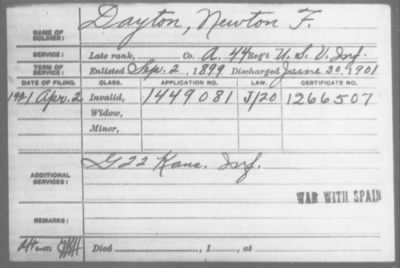 NAME OF SOLDIER: Dayton, Newton F.
SERVICE: Late rank, Co. A, 44 Reg't U. S. V. Inf.
TERM OF SERVICE: Enlisted Sep. 2, 1899 Discharged June 30, 1901
DATE OF FILING. CLASS. APPLICATION NO. LAW. CERTIFICATE NO.
1921 Apr. 2 Invalid, 1449081 J120 1266507
Widow,
Minor,
ADDITIONAL SERVICES: G 22 Kans. Inf.
WAR WITH SPAIN
REMARKS:
Died , 1 , at